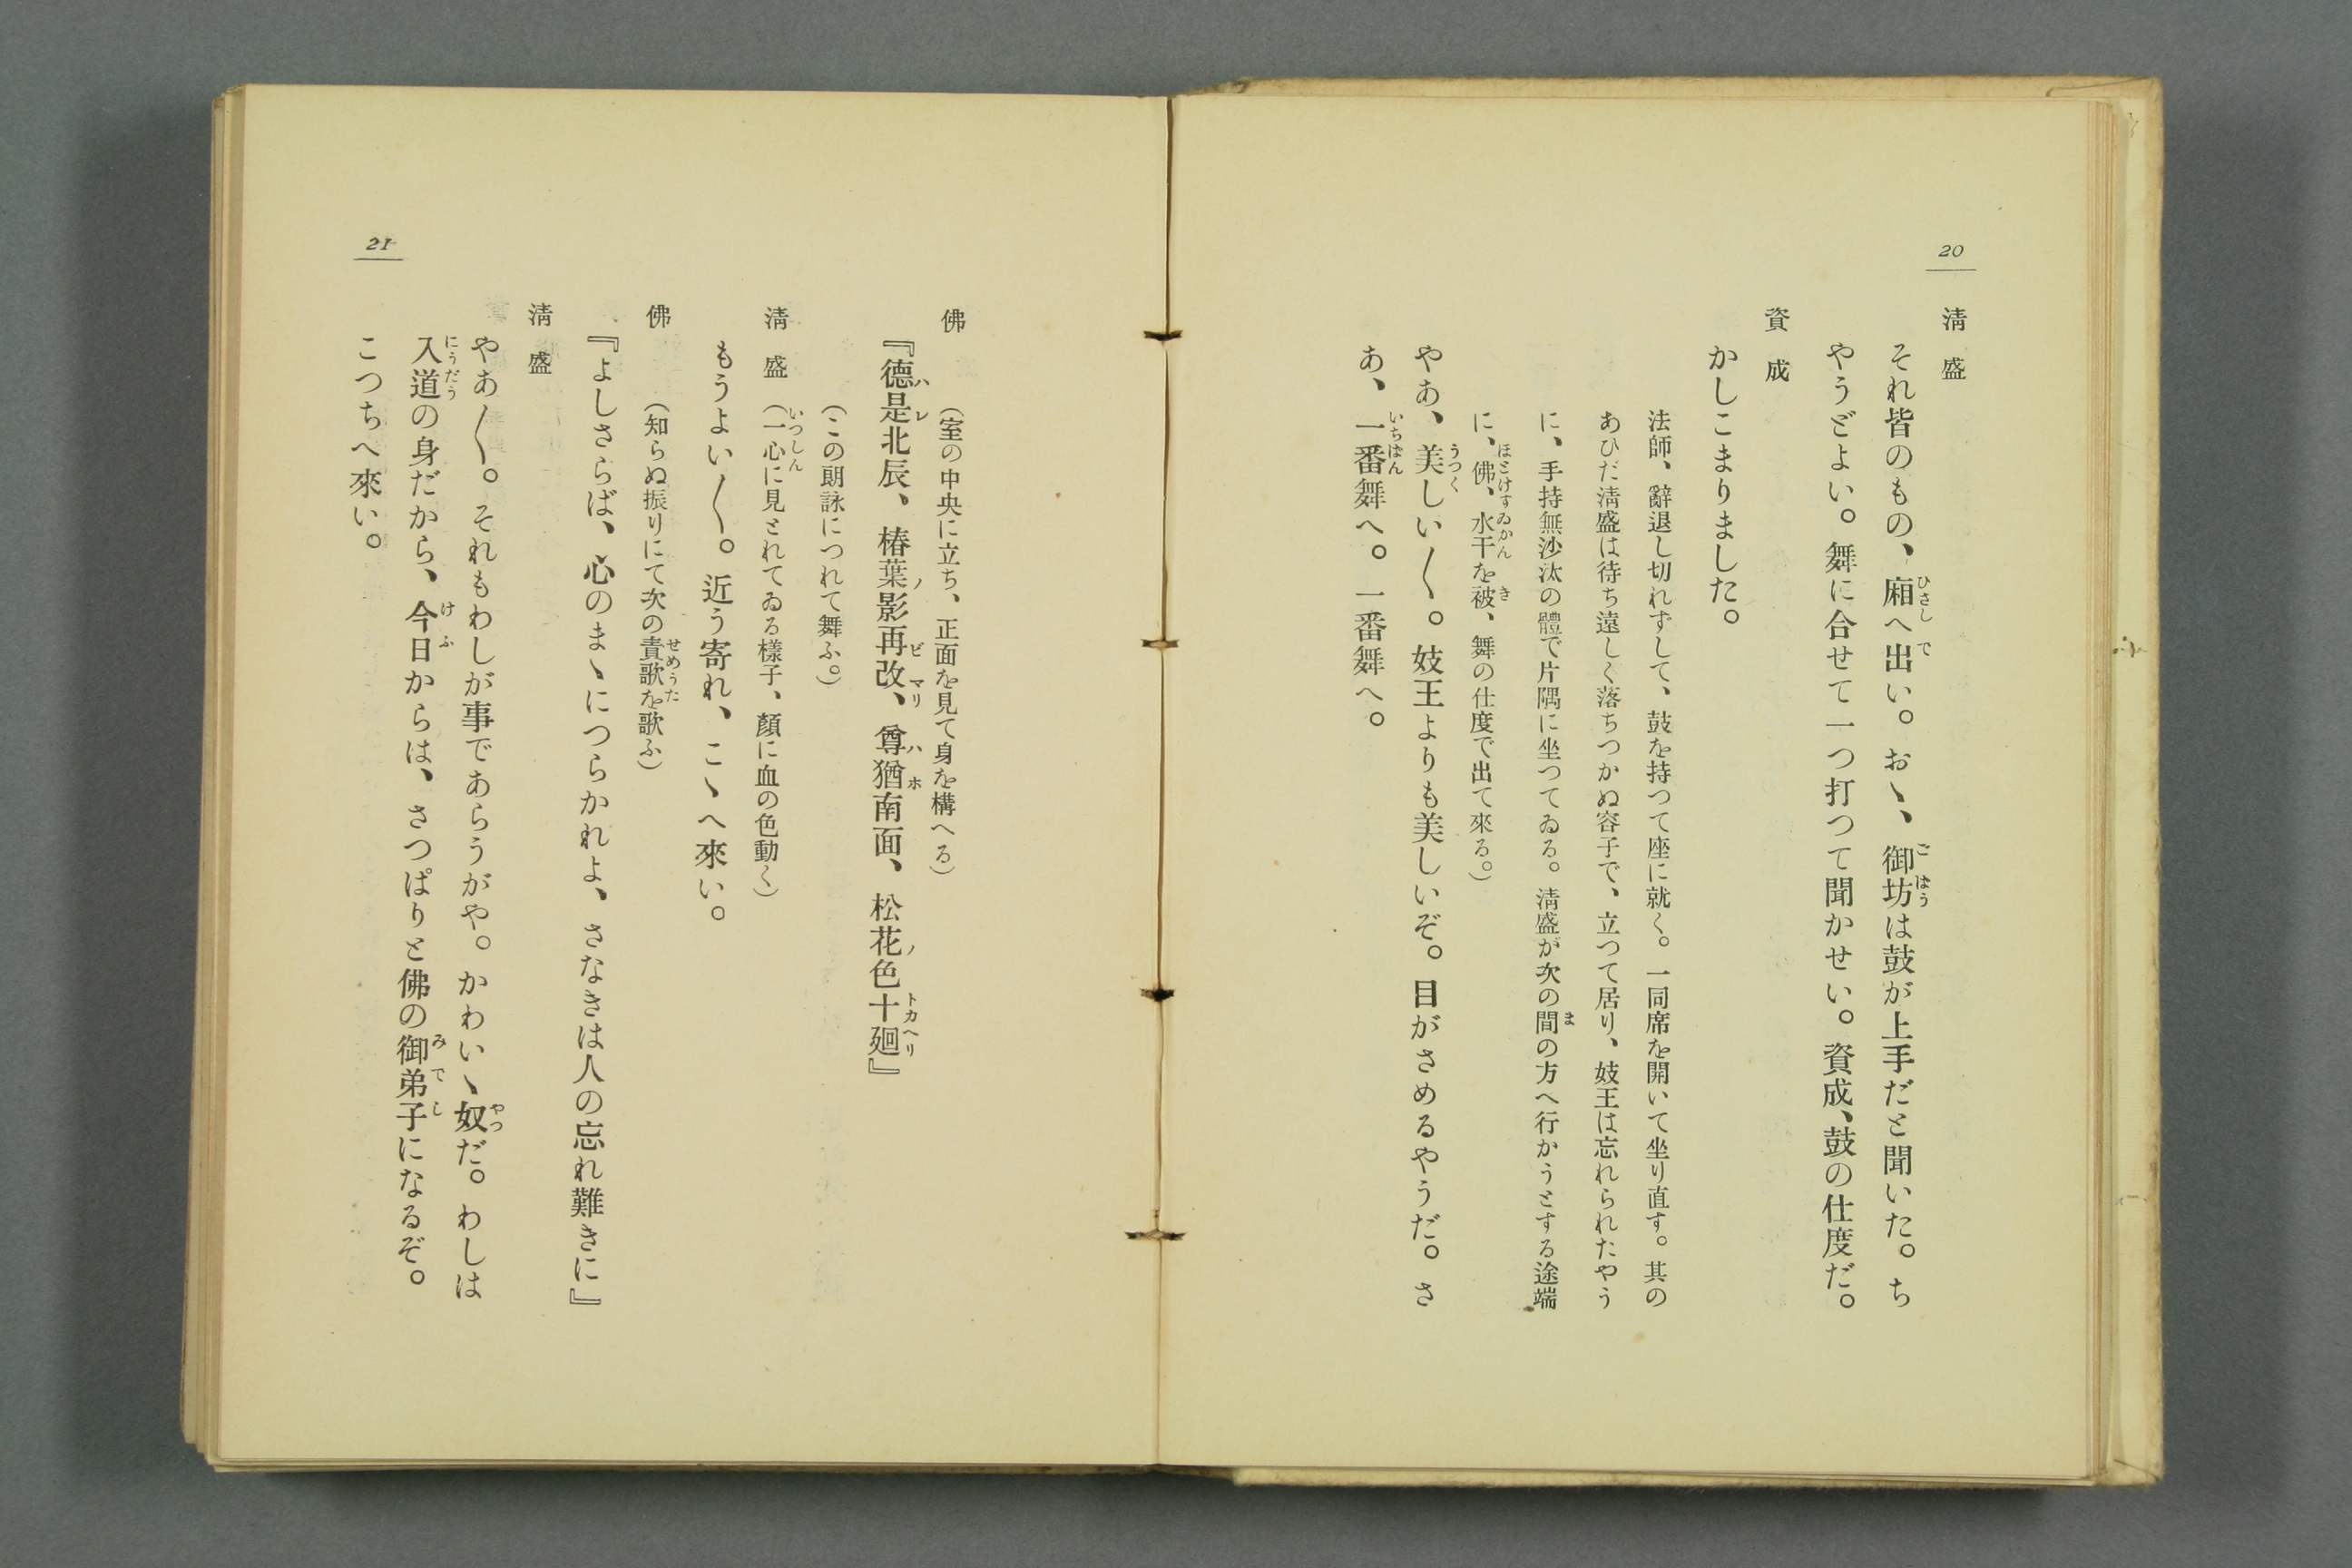 20
淸盛
それ皆のもの、廂へ出い。おゝ、御坊は鼓が上手だと聞いた。ち
やうどよい。舞に合せて一つ打つて聞かせい。資成、鼓の仕度だ。
資成
かしこまりました。
法師、辭退し切れずして、鼓を持つて座に就く。一同席を開いて坐り直す。其の
あひだ淸盛は待ち遠しく落ちつかぬ容子で、立つて居り、妓王は忘れられたやう
に、手持無沙汰の體で片隅に坐つてゐる。淸盛が次の間の方へ行かうとする途端
に、佛、水干を被、舞の仕度で出て來る。）
やあ、美しい〳〵。妓王よりも美しいぞ。目がさめるやうだ。さ
あ、一番舞へ。一番舞へ。
21
佛
（室の中央に立ち、正面を見て身を構へる）
『德是北辰、椿葉影再改、尊猶南面、松花色十廻』
（この朗詠につれて舞ふ。）
淸盛
（一心に見とれてゐる樣子、顏に血の色動く）
もうよい〳〵。近う寄れ、こゝへ來い。
佛
（知らぬ振りにて次の責歌を歌ふ）
『よしさらば、心のまゝにつらかれよ、さなきは人の忘れ難きに』
淸盛
やあ〳〵。それもわしが事であらうがや。かわいゝ奴だ。わしは
入道の身だから、今日からは、さつぱりと佛の御弟子になるぞ。
こつちへ來い。